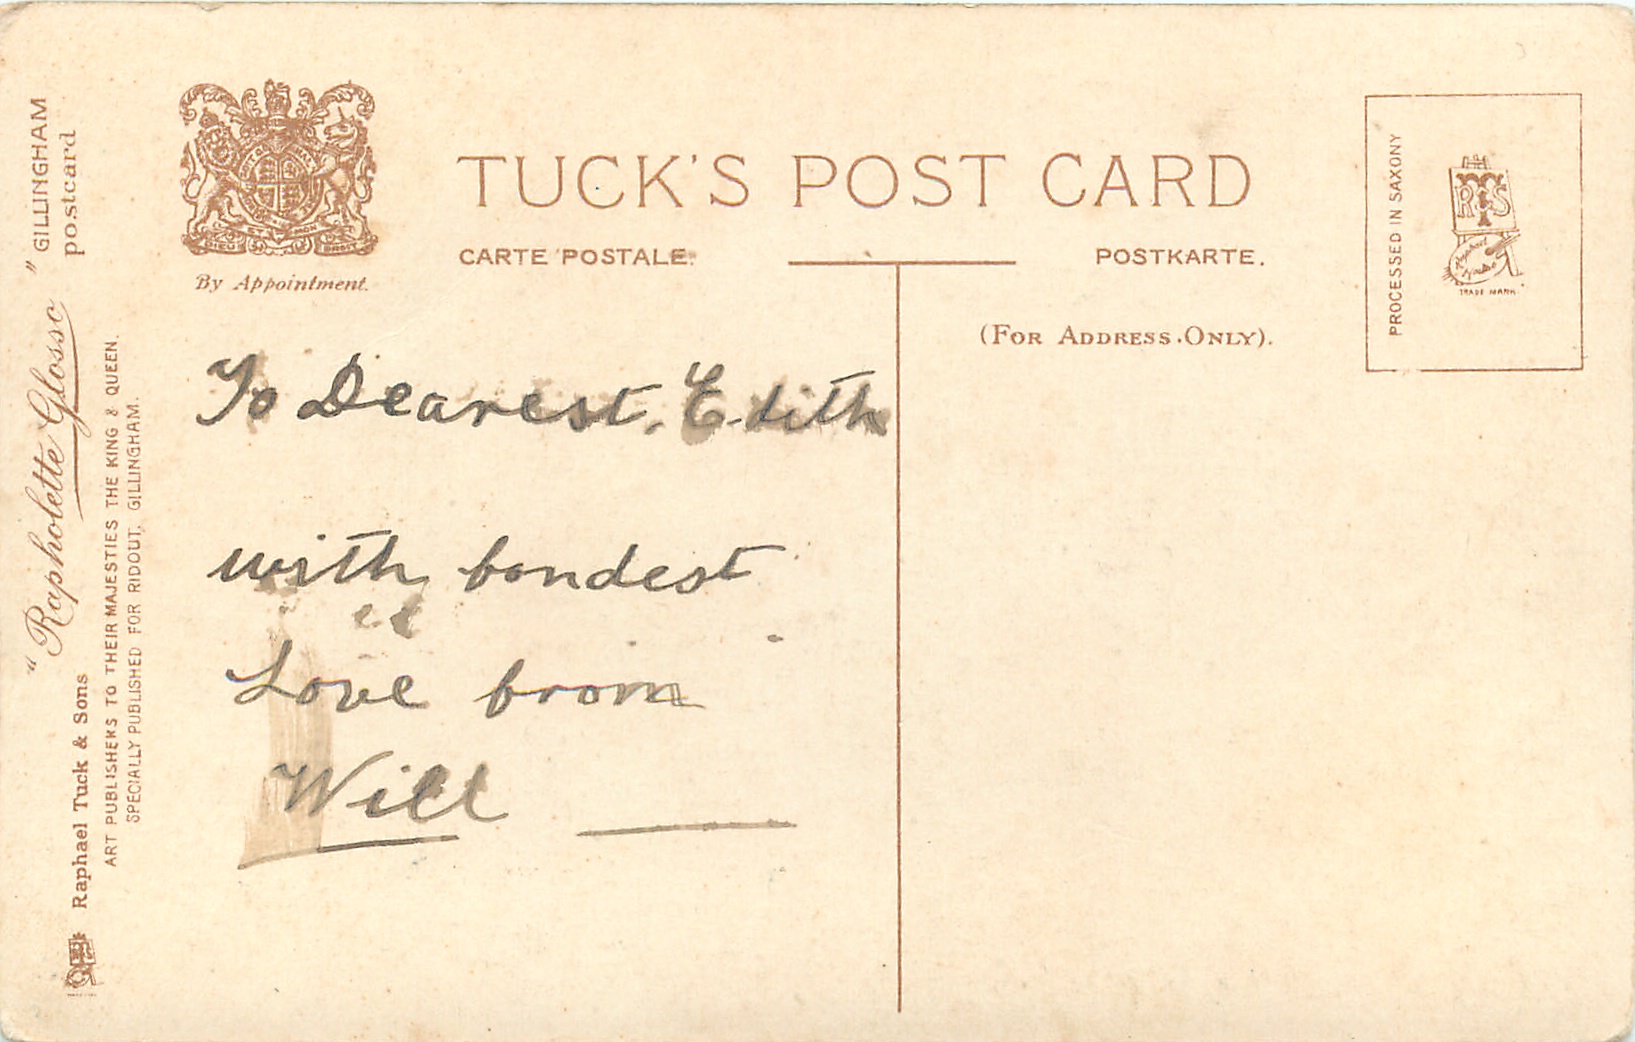 "GILLINGHAM"
postcard
"Rapholette Glosso"
Raphael Tuck & Sons
ART PUBLISHERS TO THEIR MAJESTIES THE KING & QUEEN.
SPECIALLY PUBLISHED FOR RIDOUT, GILLINGHAM.
By Appointment.
TUCK'S POST CARD
CARTE POSTALE.
POSTKARTE.
(FOR ADDRESS ONLY).
PROCESSED IN SAXONY
R&S
TRADE MARK.
To Dearest, Edith
with fondest
Love from
Will